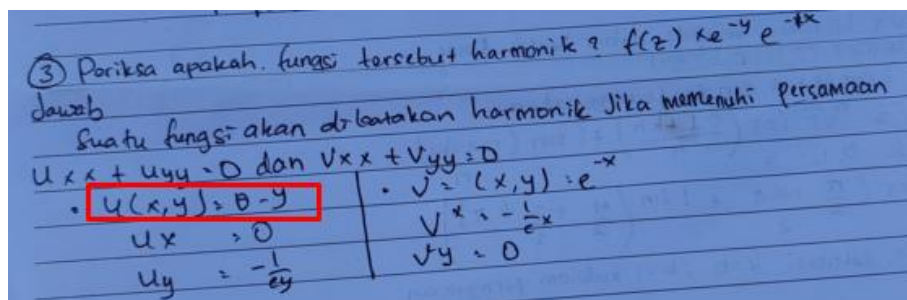 ③ Periksa apakah. fungsi tersebut harmonik? f(z) = e^-y e^-ix
Jawab
Suatu fungsi akan dikatakan harmonik Jika memenuhi persamaan
Uxx + Uyy = 0 dan Vxx + Vyy = 0
• U(x,y) = θ - y
Ux = 0
Uy = -1/ey
• V = (x,y) = e^-x
V^x = -1/e x
Vy = 0